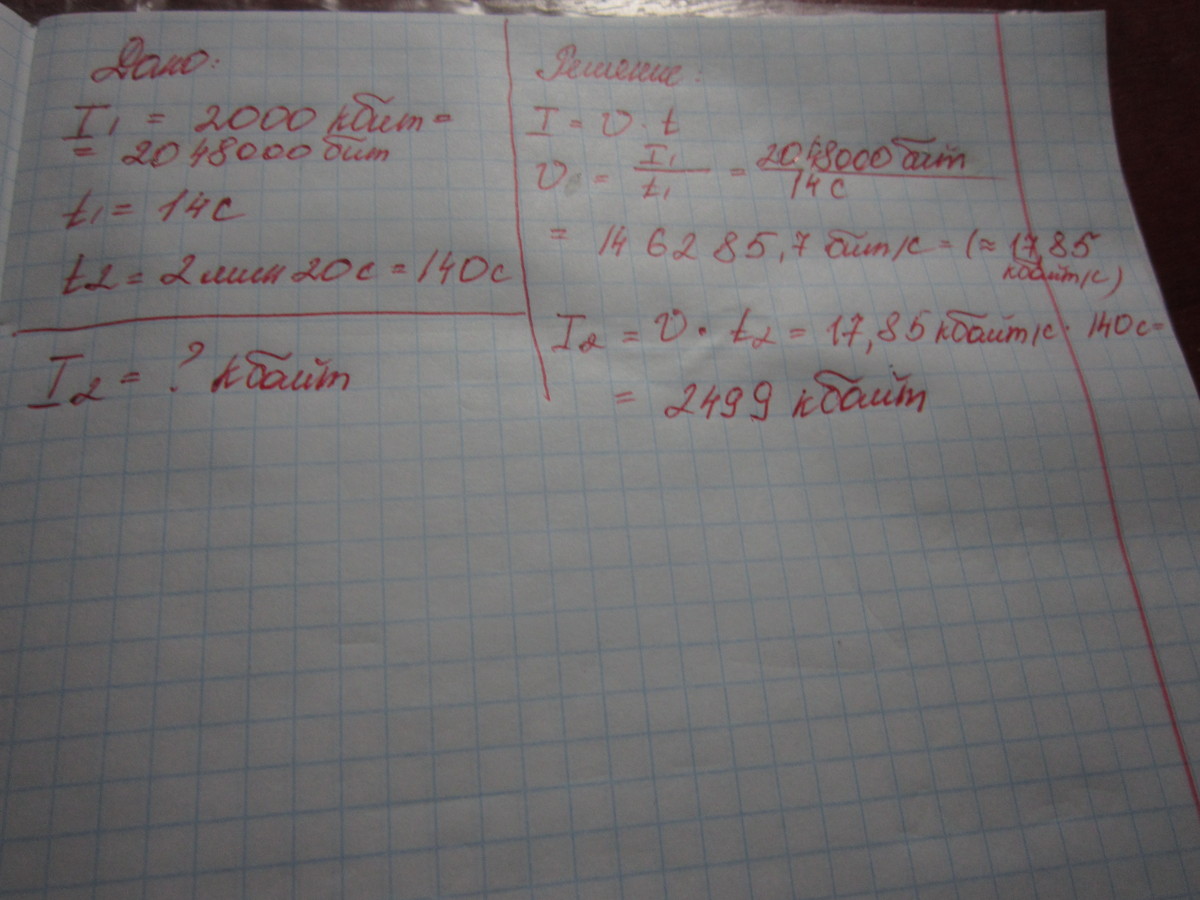 Дано:
I1 = 2000 кбит =
= 2048000 бит
t1 = 14с
t2 = 2 мин 20с = 140с
I2 = ? кбайт
Решение:
I = υ · t
υ = I1/t1 = 2048000 бит/14с
= 146285,7 бит/с = (≈ 17,85
кбайт/с)
I2 = υ · t2 = 17,85 кбайт/с · 140с=
= 2499 кбайт